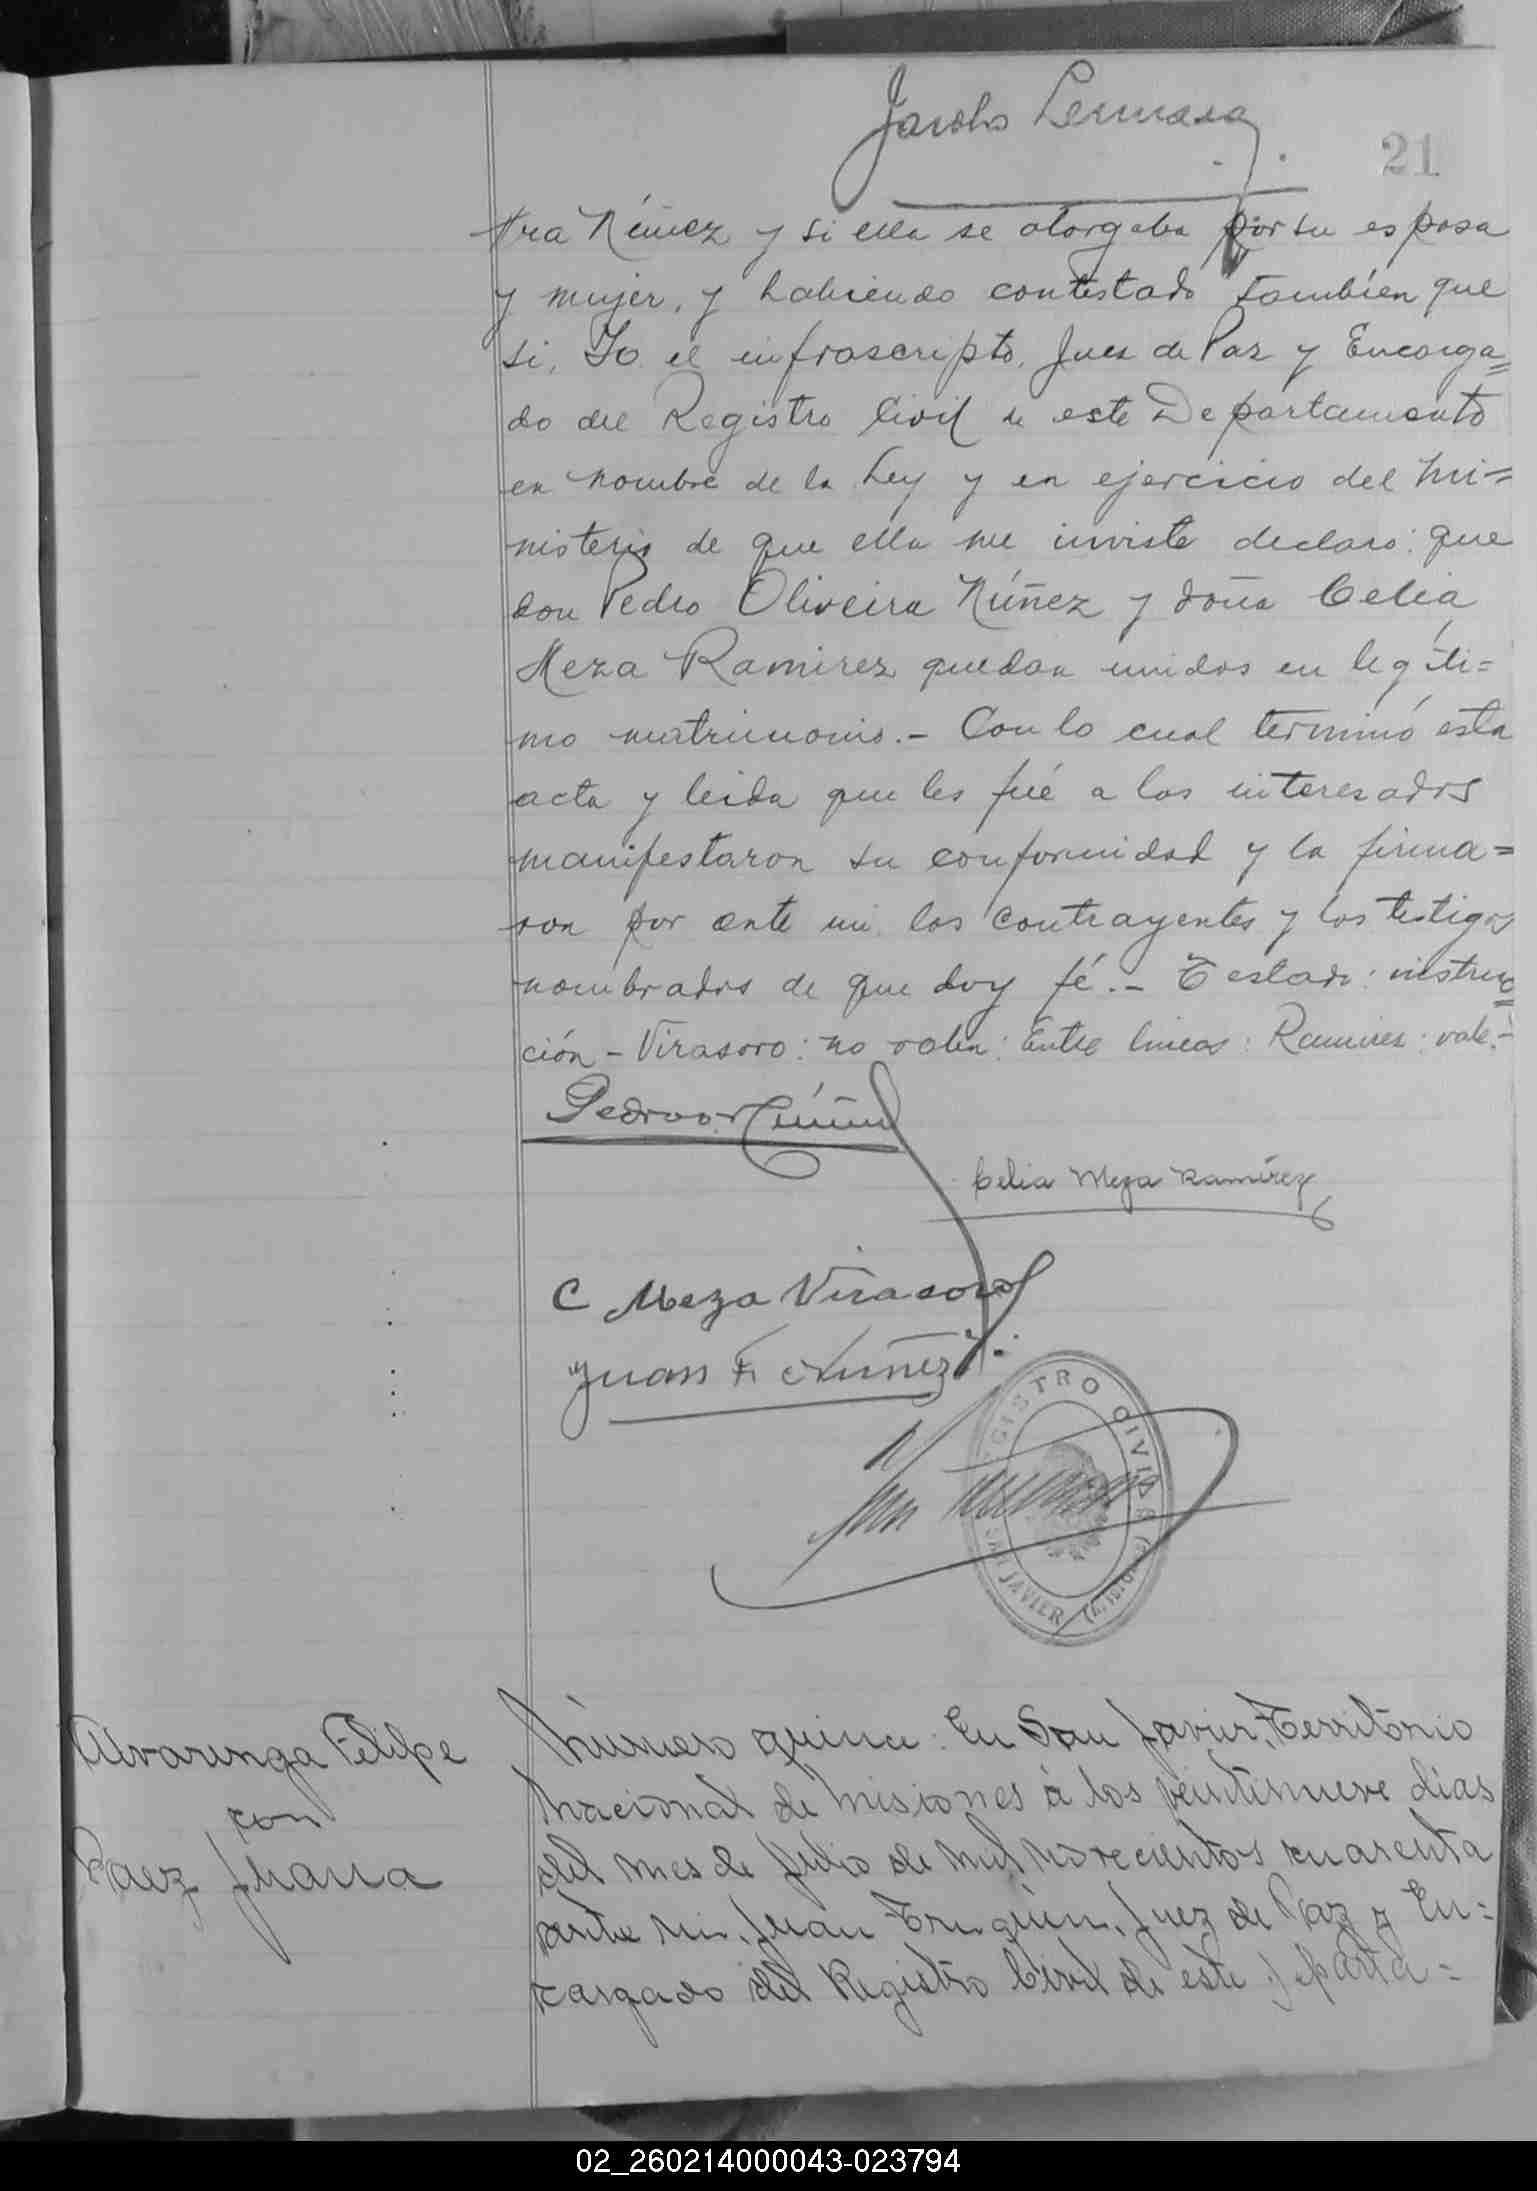 21
ra Núñez y si ella se otorgaba por su esposa
y mujer, y habiendo contestado también que
si, Yo el infrascripto, Juez de Paz y Encarga=
do del Registro Civil de este Departamento
en nombre de la Ley y en ejercicio del Mi=
nisterio de que ella me inviste declaro: que
don Pedro Oliveira Núñez y doña Celia
Meza Ramirez quedan unidos en legíti=
mo matrimonio.- Con lo cual terminó esta
acta y leida que les fué a los interesados
manifestaron su conformidad y la firma=
ron por ante mi los contrayentes y los testigos
nombrados de que doy fé.- Testado: instruc=
ción - Virasoro: no valen: Entre lineas: Ramirez: vale.-
Pedro O. Núñez
Celia Meza Ramírez
C Meza Virasoro
Juan F. Núñez
REGISTRO CIVIL
SAN JAVIER
Alvarenga Felipe
con
Paez Juana
Número quince: En San Javier, Territorio
Nacional de Misiones á los veintinueve dias
del mes de Julio de mil novecientos cuarenta
ante mi, Juan Truquin, Juez de Paz y En=
cargado del Registro Civil de este Departa=
02_260214000043-023794